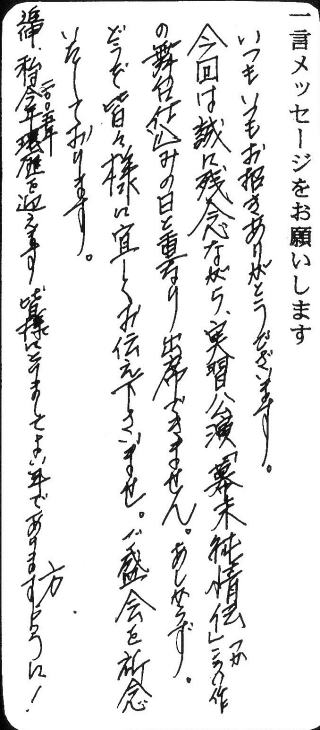 一言メッセージをお願いします
いつもいつもお招きありがとうございます。
今回は誠に残念ながら、実習公演「幕末純情伝」つか こうへい作
の舞台仕込みの日と重なり出席できません。あしからず。
どうぞ皆々様に宜しくお伝え下さいませ。ご盛会を祈念
いたしております。
二〇〇五年
私は今年還暦を迎えます 皆様にとりましてよい年でありますように!